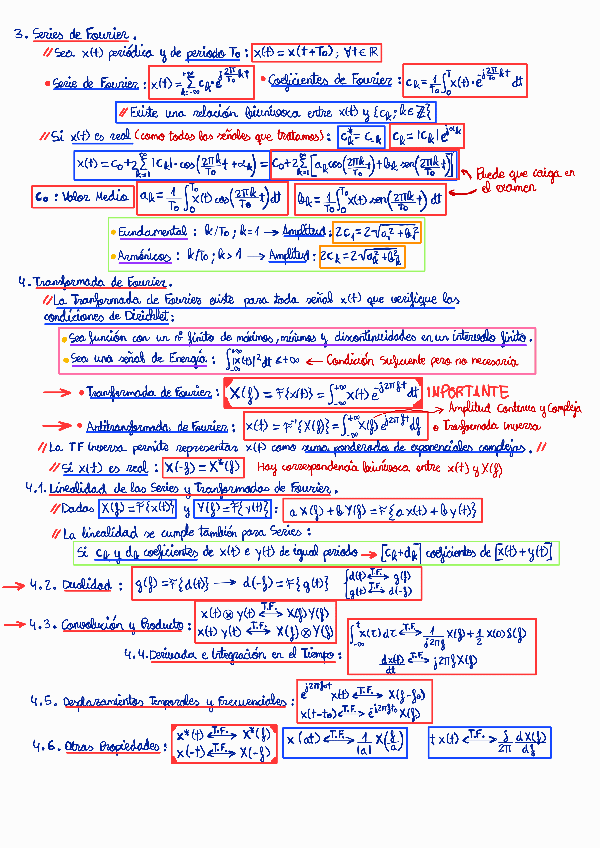 3. Series de Fourier.
// Sea x(t) periódica y de periodo T₀: x(t) = x(t+T₀); ∀t ∈ ℝ
• Serie de Fourier: x(t) = Σ_{k=-∞}^{+∞} c_k · e^{j 2π/T₀ kt} • Coeficientes de Fourier: c_k = 1/T₀ ∫_0^{T₀} x(t) · e^{-j 2π/T₀ kt} dt
// Existe una relación biunívoca entre x(t) y {c_k; k ∈ ℤ}
// Si x(t) es real (como todas las señales que tratamos): c_k^* = c_{-k} c_k = |c_k| e^{jα_k}
x(t) = c₀ + 2 Σ_{k=1}^{∞} |c_k| · cos(2πk/T₀ t + α_k) = c₀ + 2 Σ_{k=1}^{∞} [a_k cos(2πk/T₀ t) + b_k sen(2πk/T₀ t)]
Puede que caiga en el examen
c₀: Valor Medio a_k = 1/T₀ ∫_0^{T₀} x(t) cos(2πk/T₀ t) dt b_k = 1/T₀ ∫_0^{T₀} x(t) sen(2πk/T₀ t) dt
• Fundamental: k/T₀; k=1 → Amplitud: 2c₁ = 2√(a₁² + b₁²)
• Armónicos: k/T₀; k>1 → Amplitud: 2c_k = 2√(a_k² + b_k²)
4. Transformada de Fourier.
// La Tranformada de Fourier existe para toda señal x(t) que verifique las
condiciones de Dirichlet:
• Sea función con un nº finito de máximos, mínimos y discontinuidades en un intervalo finito.
• Sea una señal de Energía: ∫_{-∞}^{+∞} |x(t)|² dt < +∞ ← Condición suficiente pero no necesaria
→ • Transformada de Fourier: X(f) = F{x(t)} = ∫_{-∞}^{+∞} x(t) e^{-j2πft} dt IMPORTANTE
→ Amplitud Continua y Compleja
→ • Antitransformada de Fourier: x(t) = F⁻¹{X(f)} = ∫_{-∞}^{+∞} X(f) e^{j2πft} df o Trasformada Inversa
// La TF Inversa permite representar x(t) como suma ponderada de exponenciales complejas. //
// Si x(t) es real: X(-f) = X*(f) Hay correspondencia biunívoca entre x(t) y X(f)
4.1. Linealidad de las Series y Tranformadas de Fourier.
// Dadas X(f) = F{x(t)} y Y(f) = F{y(t)}: a X(f) + b Y(f) = F{a x(t) + b y(t)}
// La linealidad se cumple también para Series:
Si c_k y d_k coeficientes de x(t) e y(t) de igual periodo → [c_k + d_k] coeficientes de [x(t) + y(t)]
→ 4.2. Dualidad: g(f) = F{d(t)} → d(-f) = F{g(t)} { d(t) <T.F.> g(f)
g(t) <T.F.> d(-f)
→ 4.3. Convolución y Producto: x(t) ⊗ y(t) <T.F.> X(f) Y(f)
x(t) y(t) <T.F.> X(f) ⊗ Y(f)
4.4. Derivada e Integración en el Tiempo: ∫_{-∞}^{t} x(τ) dτ <T.F.> 1/(j2πf) X(f) + 1/2 X(0) δ(f)
dx(t)/dt <T.F.> j2πf X(f)
4.5. Desplazamientos Temporales y Frecuenciales: e^{j2πf₀t} x(t) <T.F.> X(f-f₀)
x(t-t₀) <T.F.> e^{-j2πft₀} X(f)
4.6. Otras Propiedades: x*(t) <T.F.> X*(-f) x(at) <T.F.> 1/|a| X(f/a) t x(t) <T.F.> j/2π dX(f)/df
x(-t) <T.F.> X(-f)